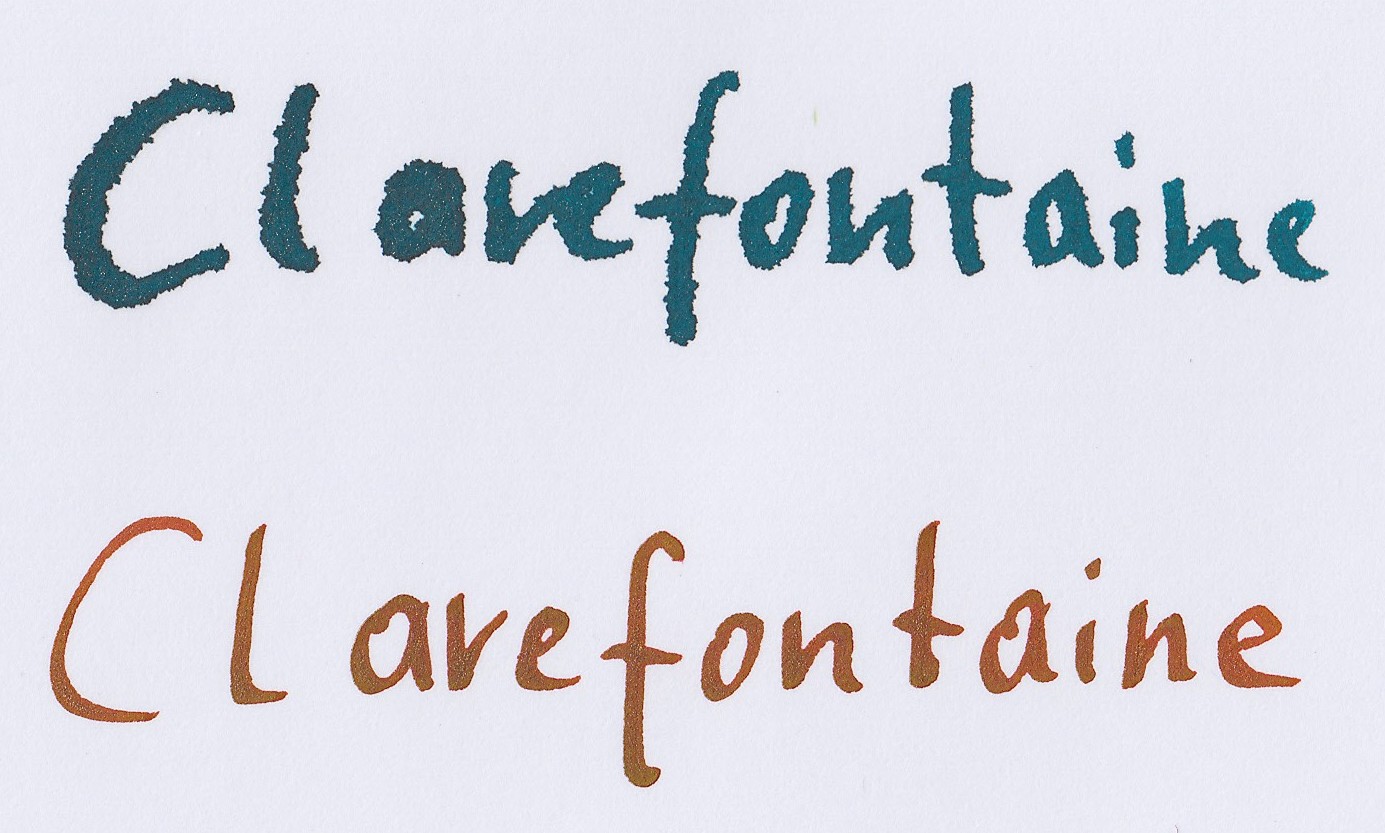 Clarefontaine
Clarefontaine